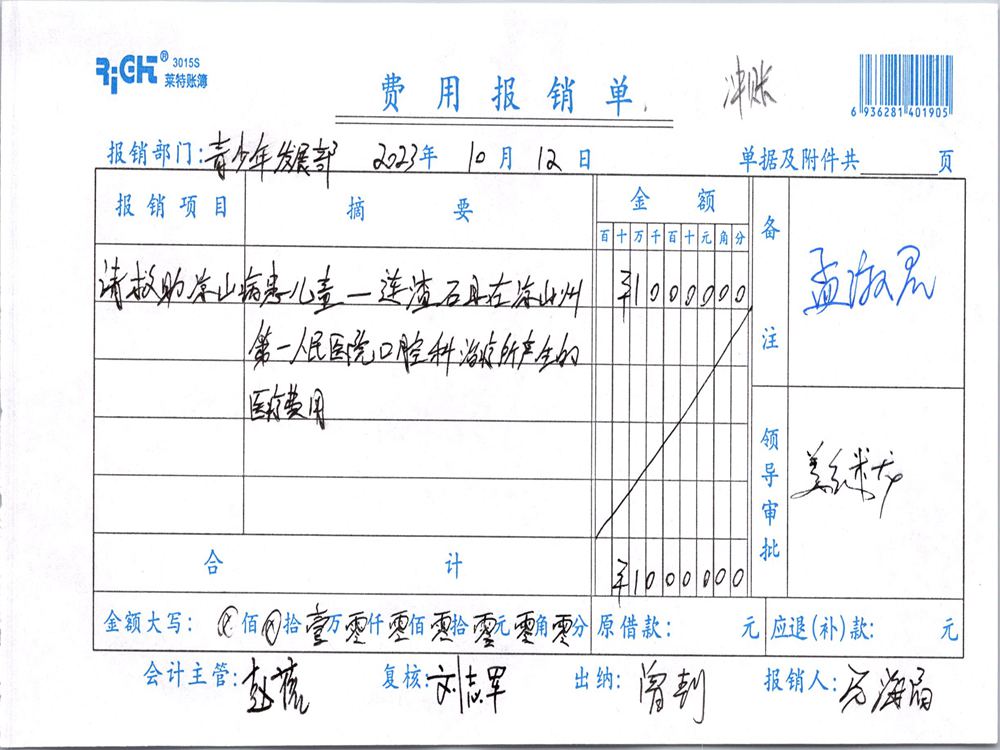 RiGHT® 3015S
莱特账簿
费用报销单
冲账
6 936281 401905
报销部门:青少年发展部 2023年 10月 12日 单据及附件共 页
报销项目 摘要 金额 备注
百十万千百十元角分
请救助凉山病患儿童—连渣石且在凉山州 ¥1000000
第一人民医院口腔科治疗所产生的
医疗费用
孟淑君
领导审批
合计 ¥1000000
金额大写: ⊗佰⊗拾壹万零仟零佰零拾零元零角零分 原借款: 元 应退(补)款: 元
会计主管: 复核:刘志军 出纳:曾钊 报销人: